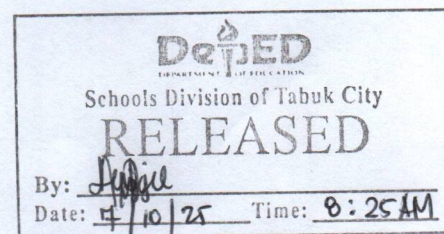 DepED
DEPARTMENT OF EDUCATION
Schools Division of Tabuk City
RELEASED
By:
Date: 7/10/25 Time: 8:25 AM